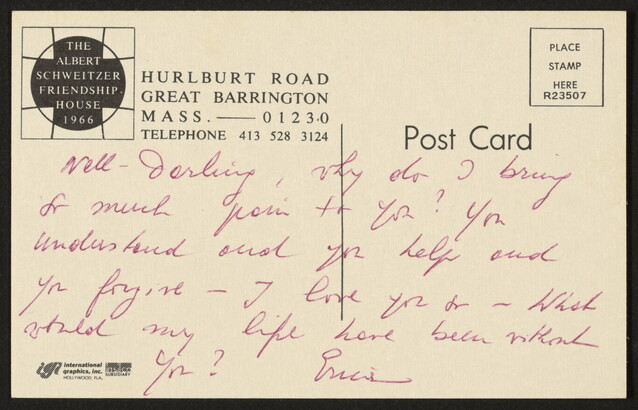 THE
ALBERT
SCHWEITZER
FRIENDSHIP
HOUSE
1966
HURLBURT ROAD
GREAT BARRINGTON
MASS. — 01230
TELEPHONE 413 528 3124
PLACE
STAMP
HERE
R23507
Post Card
Well - Darling, why do I bring
so much pain to you? You
understand and you help and
you forgive - I love you so - What
would my life have been without
you?
international
graphics, inc.
HOLLYWOOD, FLA.
SUBSIDIARY